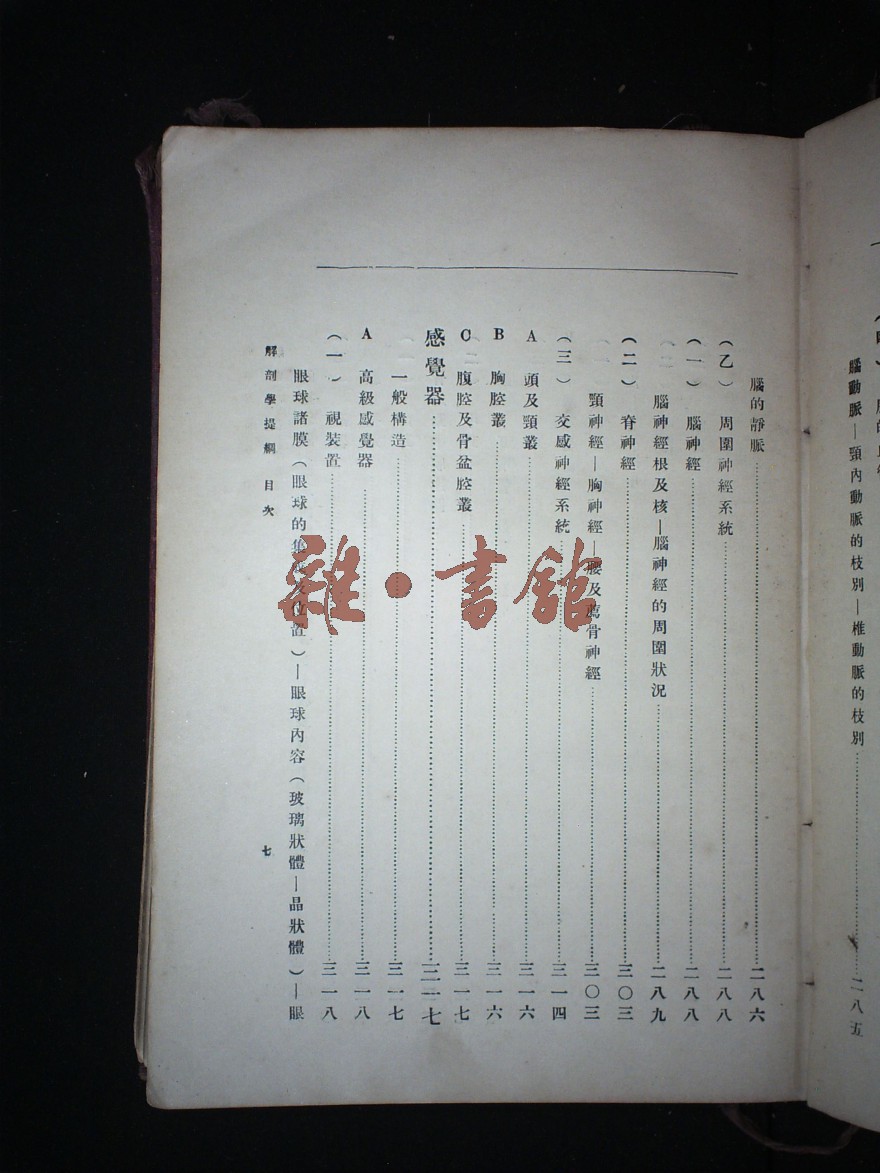 腦動脈—頸內動脈的枝別—椎動脈的枝別……二八五
腦的靜脈……二八六
(乙) 周圍神經系統……二八八
(一) 腦神經……二八八
腦神經根及核—腦神經的周圍狀況……二八九
(二) 脊神經……三〇三
頸神經—胸神經—腰及薦骨神經……三〇三
(三) 交感神經系統……三一四
A 頭及頸叢……三一六
B 胸腔叢……三一六
C 腹腔及骨盆腔叢……三一七
感覺器……三一七
一般構造……三一七
A 高級感覺器……三一八
(一) 視裝置……三一八
眼球諸膜(眼球的 及位置)—眼球內容(玻璃狀體—晶狀體)—眼
解剖學提綱 目次 七
雜·書館